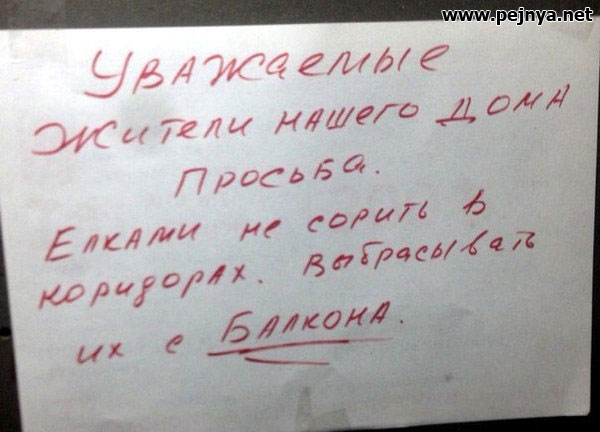 www.pejnya.net
Уважаемые
жители нашего дома
Просьба.
Елками не сорить в
коридорах. Выбрасывать
их с Балкона.